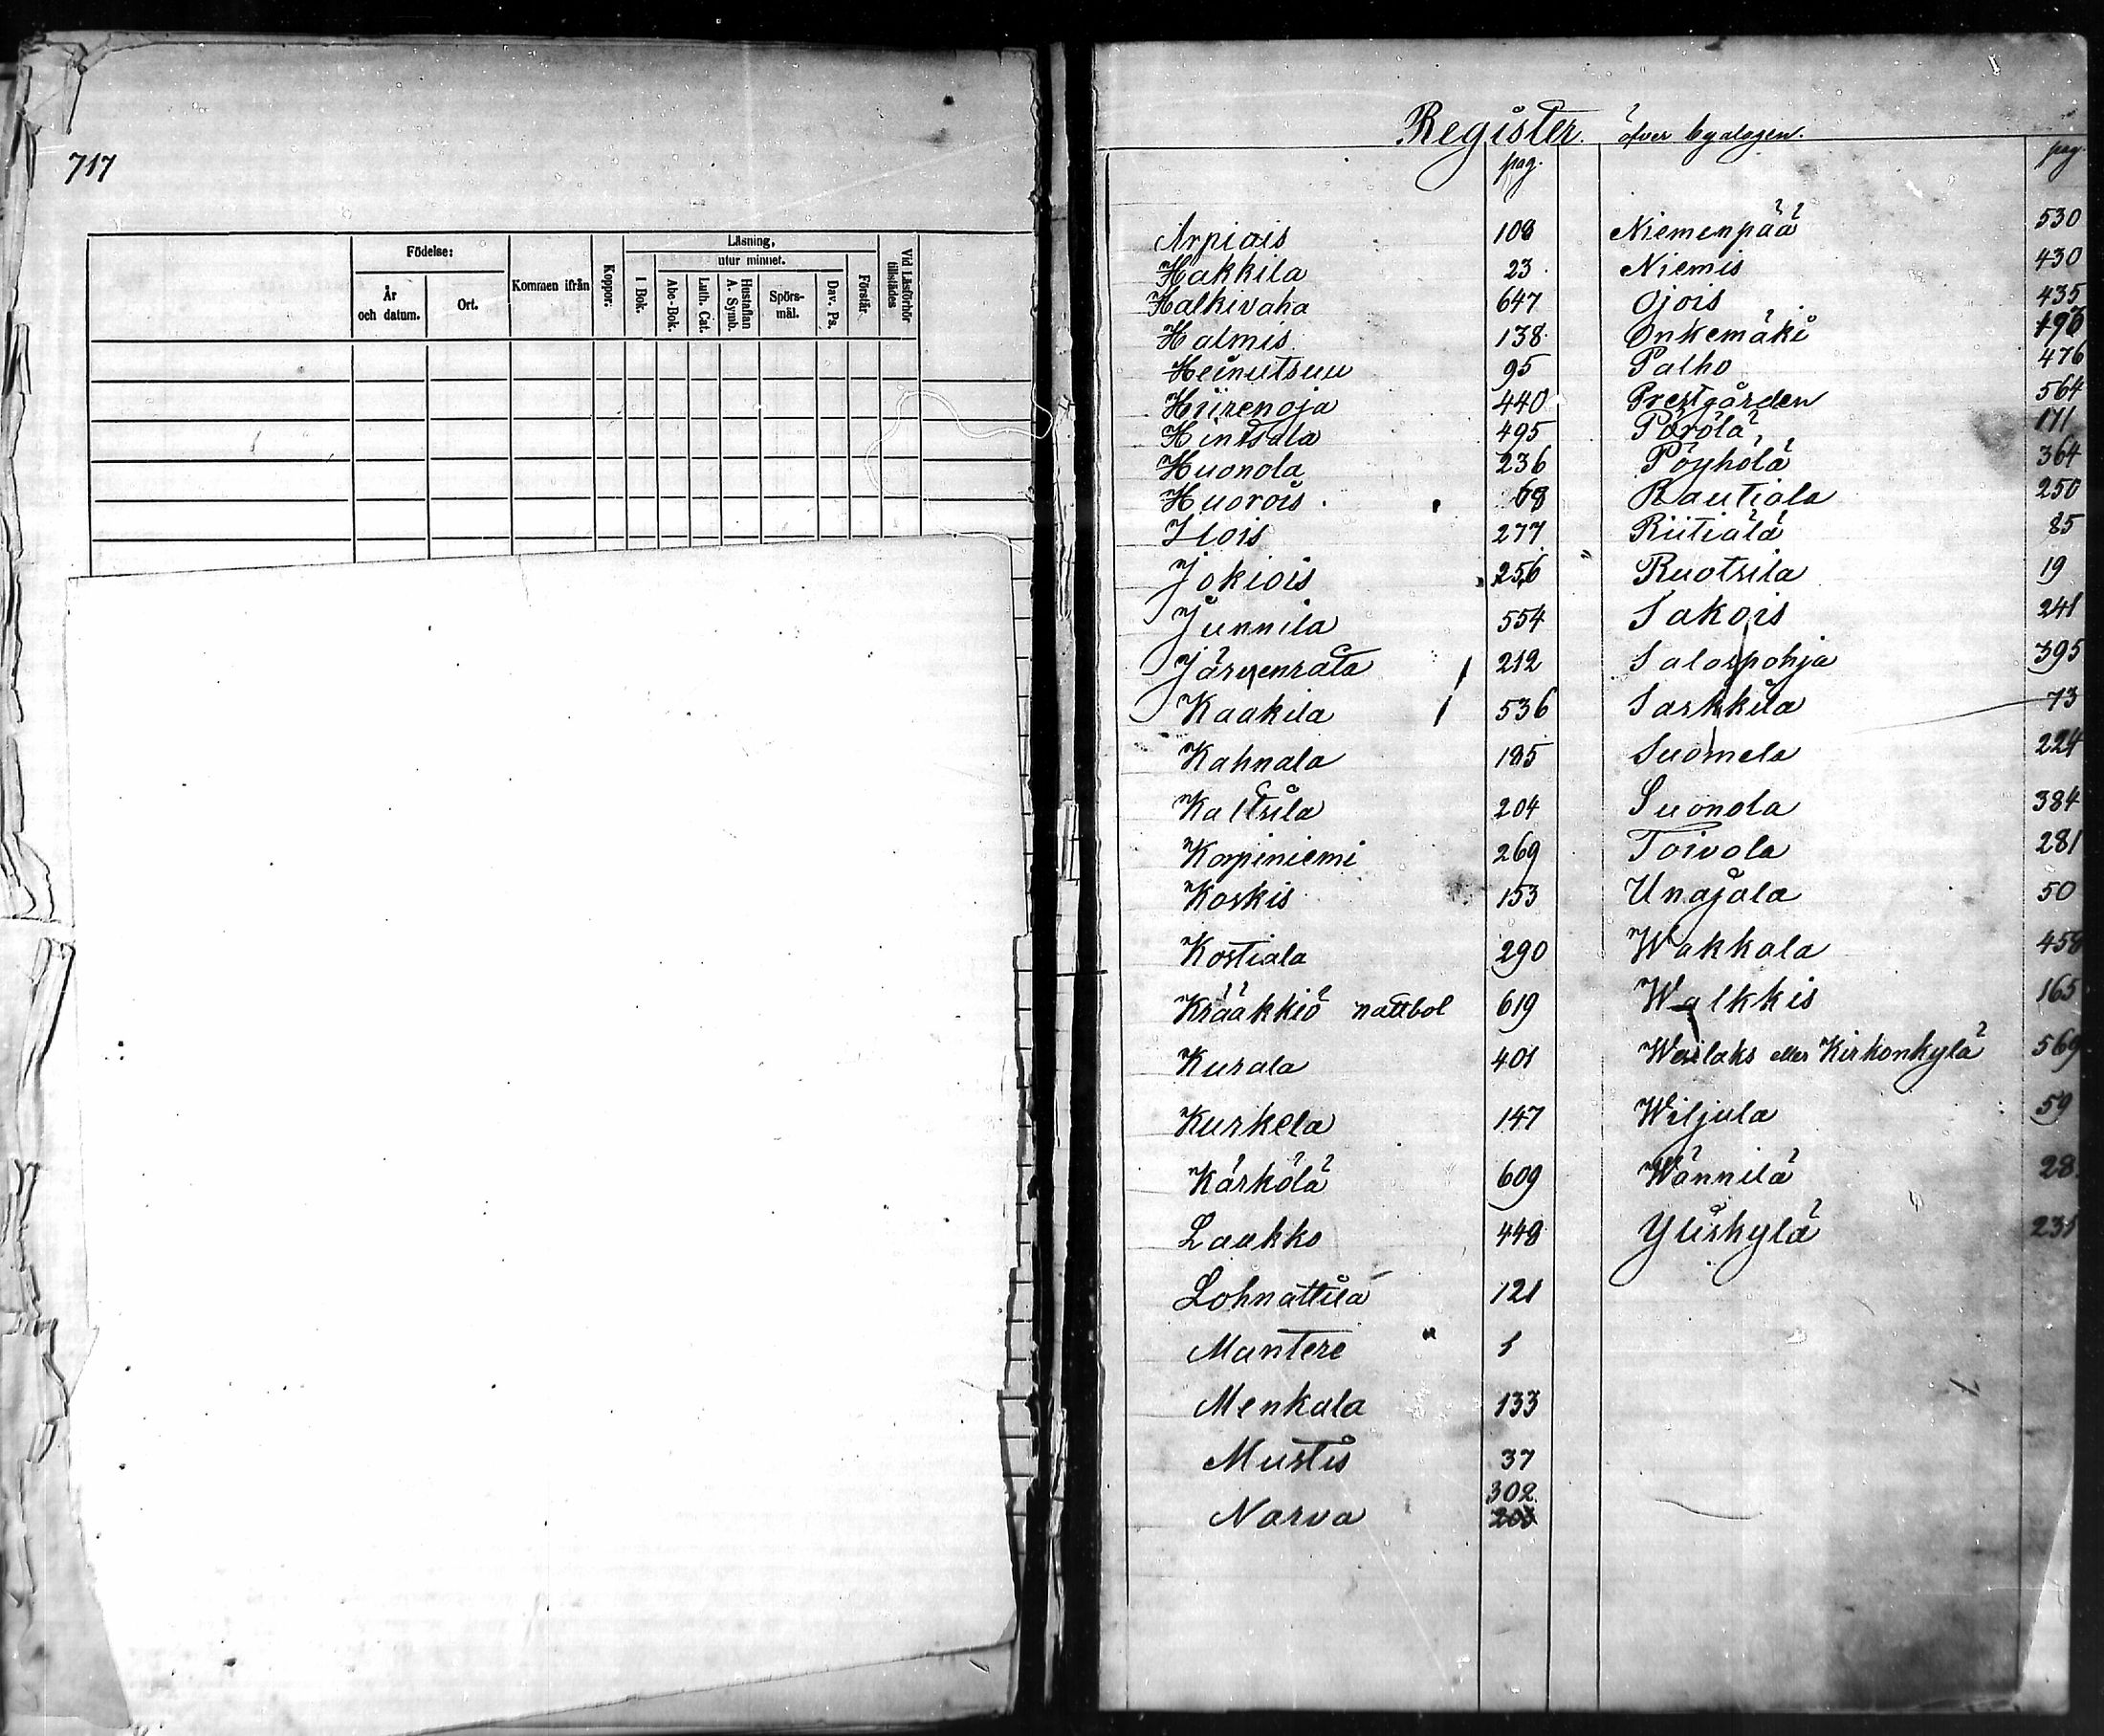 717
Födelse:
År och datum.
Ort.
Kommen ifrån
Koppor.
Läsning,
utur minnet.
I Bok.
Abc-Bok.
Luth. Cat.
Hustaflan A. Symb.
Spörsmål.
Dav. Ps.
Förstår.
Vid Läsförhör tillstädes
Register öfver byalagen.
pag. pag.
Arpiais 108 Niemenpää 530
Hakkila 23 Niemis 430
Halkivaha 647 Ojois 435
Halmis 138 Onkemäki
Heinutsuu 95 Palho 476
Hiirenoja 440 Prestgården 564
Hintsala 495 Pörölä 171
Huonola 236 Pöyhölä 364
Huorois 68 Rautiala 250
Ilois 277 Riitiälä 85
Jokiois 256 Ruotsila 19
Junnila 554 Sakois 241
Järvenrata 212 Salospohja 395
Kaakila 536 Sarkkila 73
Kahnala 185 Suomela 224
Kaltsila 204 Suonola 384
Korpiniemi 269 Toivola 281
Koskis 153 Unajala 50
Kostiala 290 Wakkala 458
Krääkkiö nattbol 619 Walkkis 165
Kurala 401 Wesilaks eller Kirkonkylä 569
Kurkela 147 Wiljula 59
Kärkölä 609 Wännilä 28
Laukko 449 Yliskylä 231
Lohnattila 121
Mantere 1
Menkala 133
Mustis 37
302
Narva